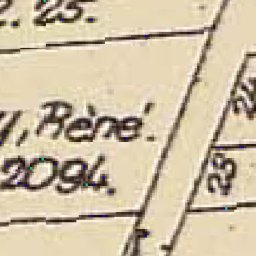 2.25.
y, Rèné.
2094.
24
25